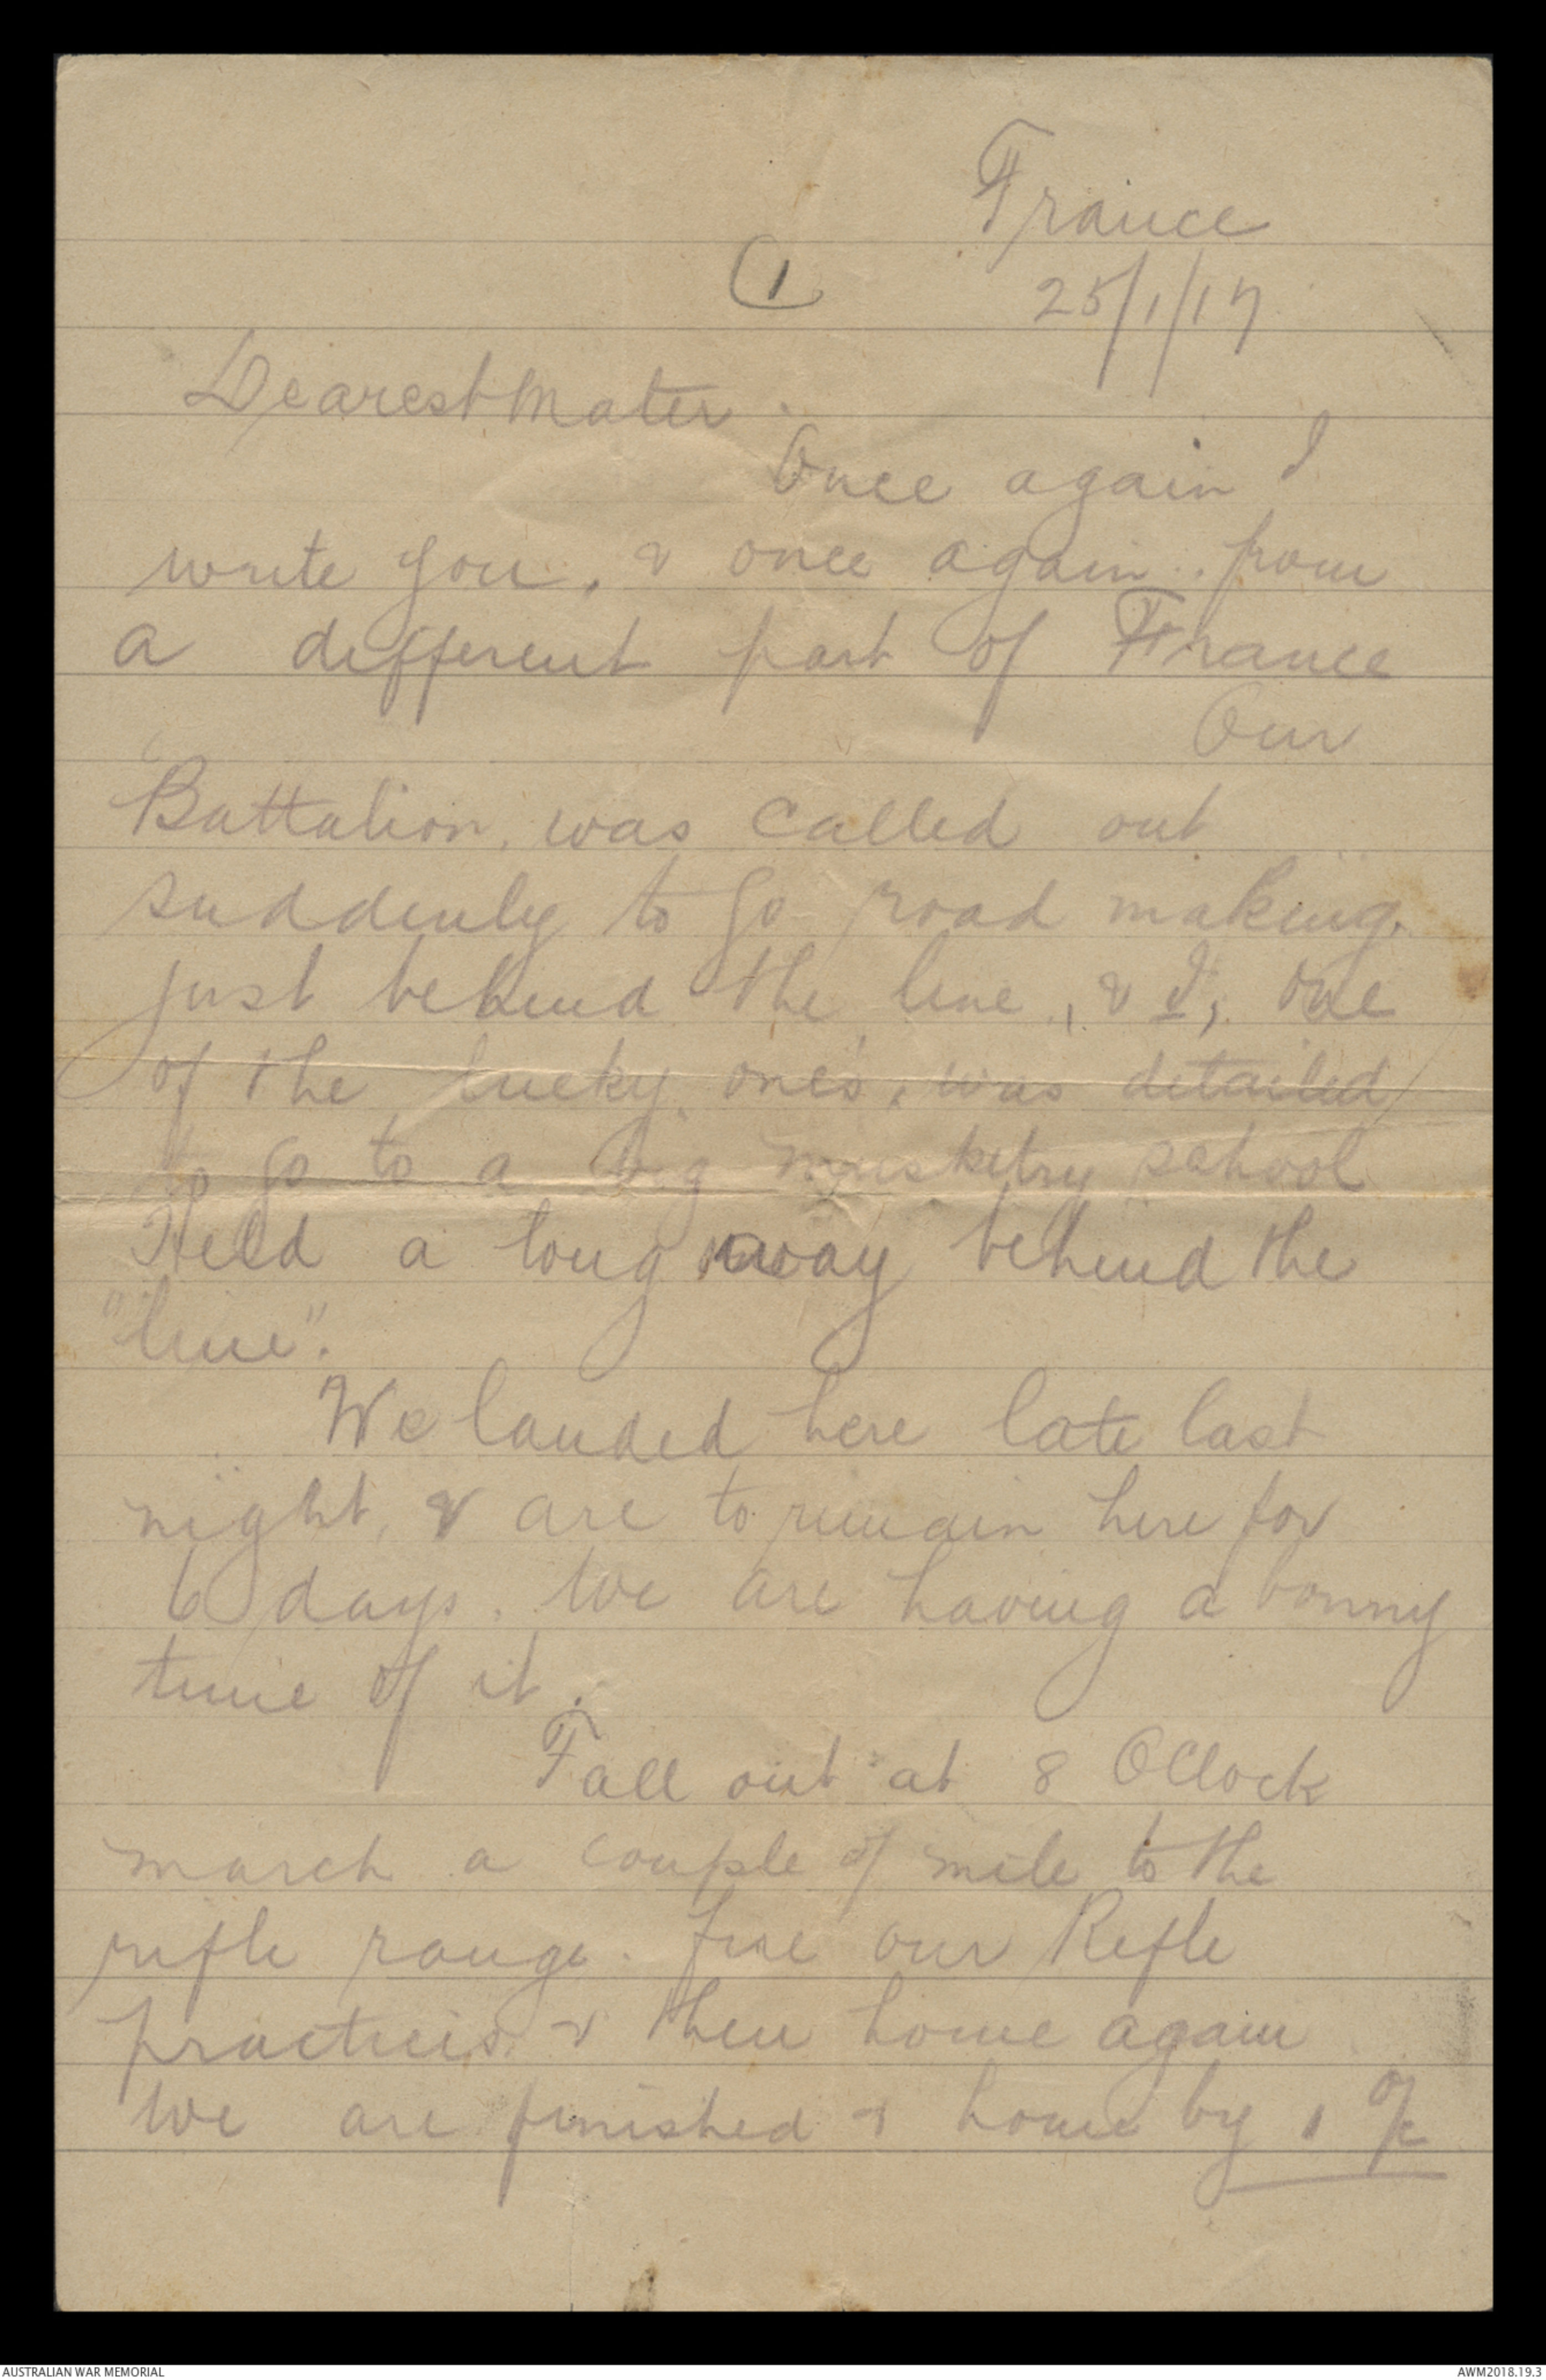 France
①
25/1/17
Dearest Mater.
Once again I
write you, & once again. from
a different part of France
Our
Battalion, was called out
suddenly to go road making.
just behind the line, & I, one
of the lucky one's, was detailed
to go to a big musketry school
Held a long away behind the
"line".
We landed here late last
night, & are to remain here for
6 days. We are having a bonny
time of it.
Fall out at 8 OClock
march a couple of mile to the
rifle range. fire our Rifle
practices & then home again
We are finished & home by 1 o/c
AUSTRALIAN WAR MEMORIAL
AWM2018.19.3